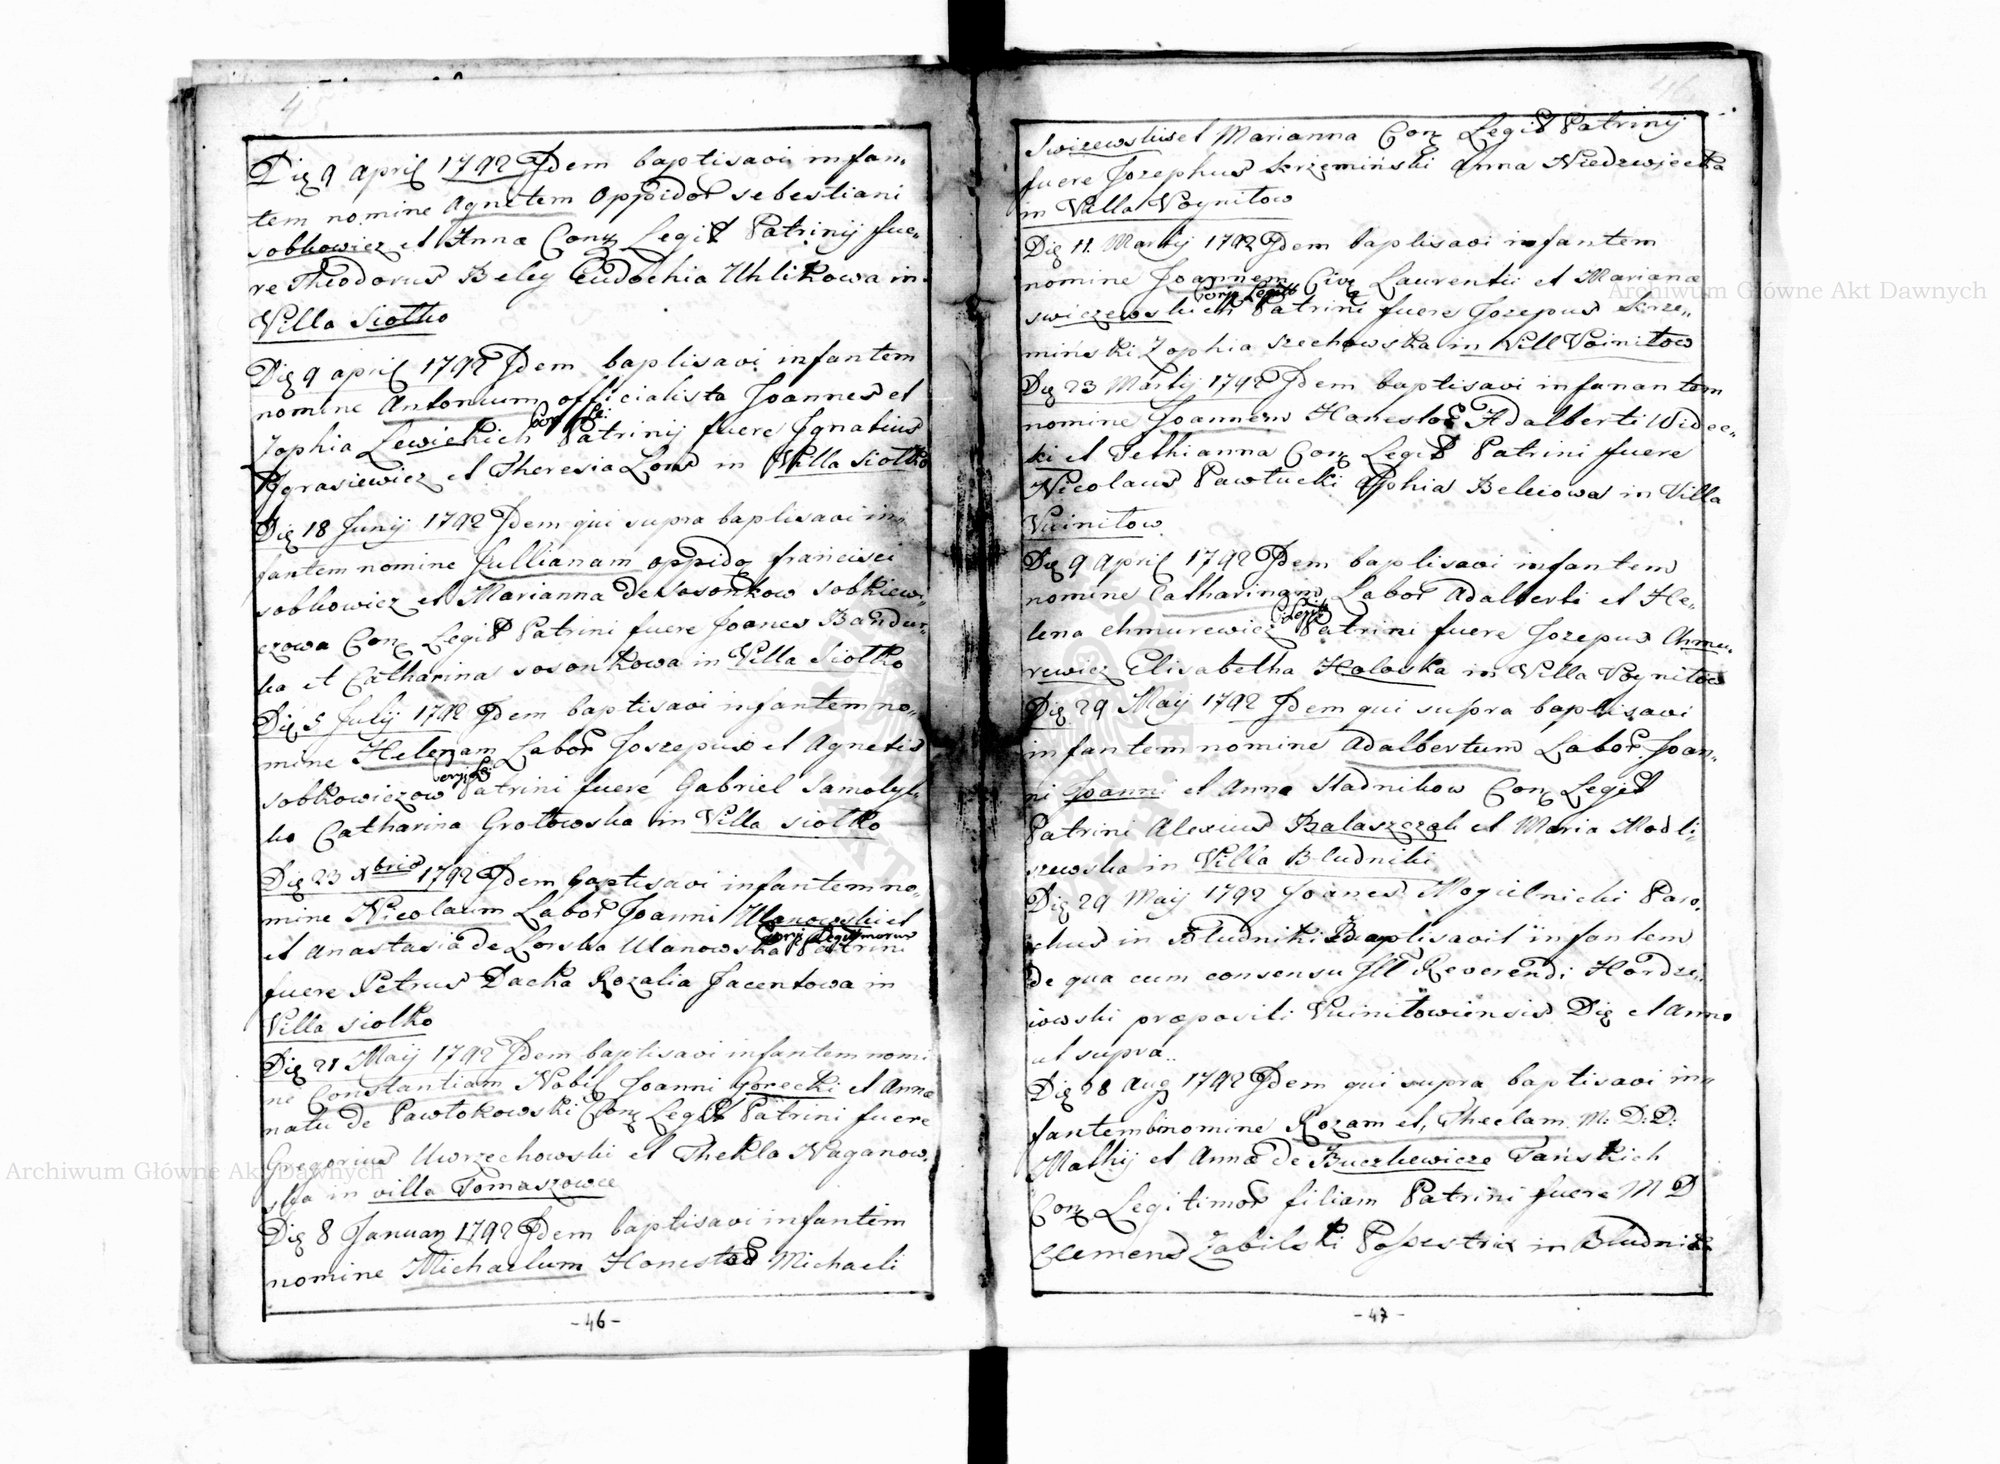 Die 9 April 1792 Idem baptisavi infan,
tem nomine Agnetem Oppidor Sebestiani
Sobkowicz et Annæ Conj Legit Patrinij fue,
re Theodorus Beley Eudochia Uhlikowa in
Villa Siołko
Die 9 April 1792 Idem baptisavi infantem
nomine Antonium officialista Joannes et
Conj Le:
Zophia Lewickich Patrinij fuere Ignatius
et Theresia in Villa Siołko
Die 18 Junij 1792 Idem qui supra baptisavi in,
fantem nomine Jullianam oppido francisci
Sobkowicz et Marianna de Sosonkow Sobkiew,
czowa Conj Legit Patrini fuere Joanes Bandur,
ka et Catharina Sosonkowa in Villa Siołko
Die 5 Julij 1792 Idem baptisavi infantem no,
mine Helenam Labor Joszepus et Agnetis
Sobkowiczow Patrini fuere Gabriel Samoly
ko Catharina Grotowska in Villa Siołko
Die 23 Xbris 1792 Idem baptisavi infantem no,
mine Nicolaum Labor Joanni Ulanowski et
Conj Legitimorum
et Anastasia de Lorska Ulanowska Patrini
fuere Petrus Dacka Rozalia Jacentowa in
Villa Siołko
Die 21 Maij 1792 Idem baptisavi infantem nomi
ne Constantiam Nobil Joanni Gorecki et Annæ
natu de Pawłokowski Conj Legit Patrini fuere
Gregorius Uwrzechowski et Thekla Naganow,
ska in villa Tomaszowce
Die 8 Januar 1792 Idem baptisavi infantem
nomine Michaelum Honestor Michaeli
-46-
46
Swizewskis et Marianna Conj Legit Patrinij
fuere Jozephus Krzemiński Anna Niedzwiecka
in Villa Voynitow
Die 11. Martij 1792 Idem baptisavi infantem
nomine Joannem Civi Laurentii et Marianæ
Conj Legitt
Swiczewskich Patrini fuere Jozepus Krze,,
miński Zophia Szechowska in Vill Voinitow
Die 23 Martij 1792 Idem baptisavi infanantem
nomine Joannem Honestor Adalberti Widec,
ki et Pethianna Conj Legit Patrini fuere
Nicolaus Pawłucki Belciowa in Villa
Vuinitow
Die 9 April 1792 Idem baptisavi infantem
nomine Catharinam Labor Adalberti et He,
C: Legit
lena Chmurewicz Patrini fuere Jozepus Chmu,
rewicz Elisabetha Holoska in Villa Voynitow
Die 29 Maij 1792 Idem qui supra baptisavi
infantem nomine Adalbertum Labor Joan,
ni Joanni et Anna Stadnikow Conj Legit
Patrini Alexius Balaszczak et Maria Modli,
szewska in Villa Bludniki
Die 29 Maij 1792 Joanes Mogielnicki Paro,
chus in Bludniki Baptisavit infantem
de qua cum consensu Ill Reverendi Hordzi,
iowski præpositi Vuinitowiensis Die et Anno
ut supra..
Die 28 Aug 1792 Idem qui supra baptisavi in,,
fantem nomine Rozam et, Theclam M: D: D:
Mathij et Annæ de Buczkowicze Tańskich
Conj Legitimor filiam Patrini fuere M D
Clemens Zabilski Possestrix in Bludniki
-47-
Archiwum Główne Akt Dawnych
Archiwum Główne Akt Dawnych